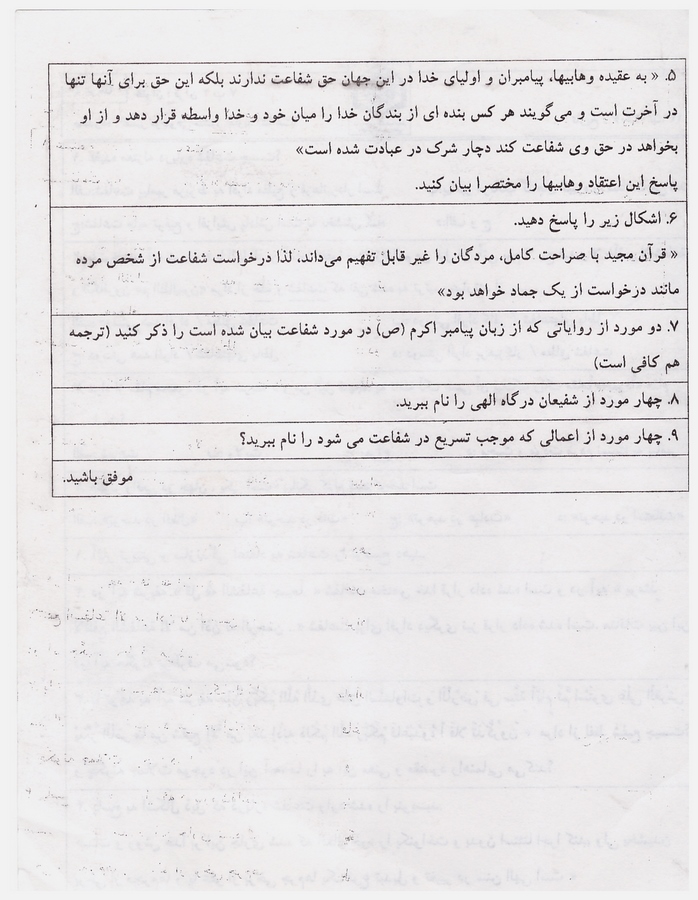 ۵. « به عقیده وهابیها، پیامبران و اولیای خدا در این جهان حق شفاعت ندارند بلکه این حق برای آنها تنها
در آخرت است و می‌گویند هر کس بنده ای از بندگان خدا را میان خود و خدا واسطه قرار دهد و از او
بخواهد در حق وی شفاعت کند دچار شرک در عبادت شده است»
پاسخ این اعتقاد وهابیها را مختصرا بیان کنید.
۶. اشکال زیر را پاسخ دهید.
« قرآن مجید با صراحت کامل، مردگان را غیر قابل تفهیم می‌داند، لذا درخواست شفاعت از شخص مرده
مانند درخواست از یک جماد خواهد بود»
۷. دو مورد از روایاتی که از زبان پیامبر اکرم (ص) در مورد شفاعت بیان شده است را ذکر کنید (ترجمه
هم کافی است)
۸. چهار مورد از شفیعان درگاه الهی را نام ببرید.
۹. چهار مورد از اعمالی که موجب تسریع در شفاعت می شود را نام ببرید؟
موفق باشید.